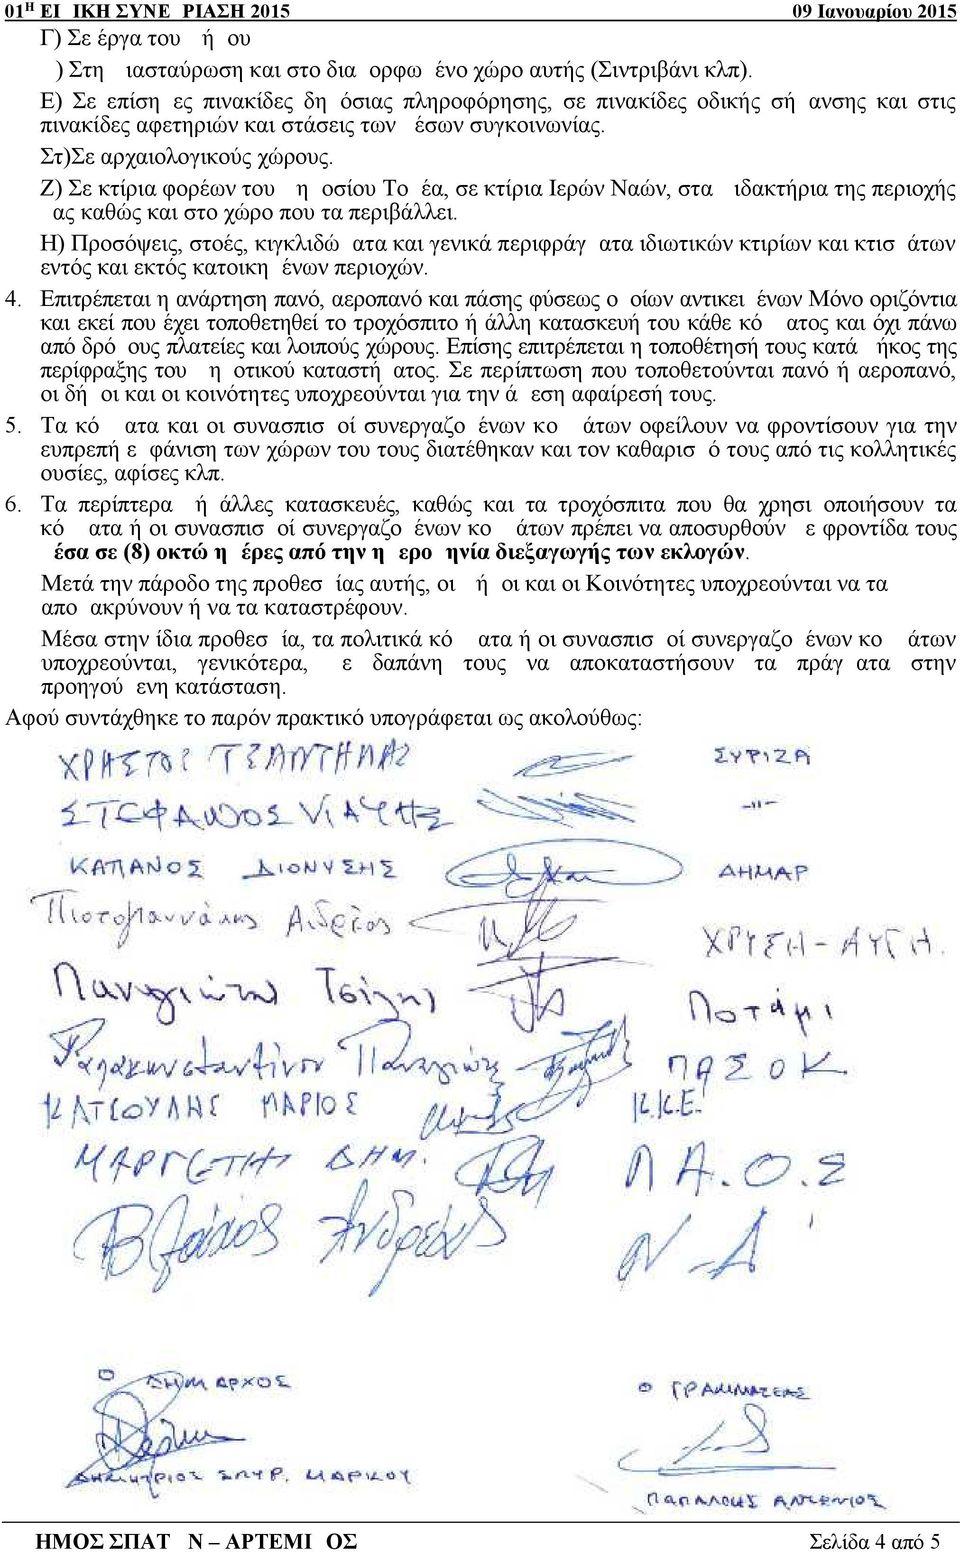 01 Η ΕΙ ΙΚΗ ΣΥΝΕ ΡΙΑΣΗ 2015 09 Ιανουαρίου 2015
Γ) Σε έργα του ή ου
) Στη ιασταύρωση και στο δια ορφω ένο χώρο αυτής (Σιντριβάνι κλπ).
Ε) Σε επίση ες πινακίδες δη όσιας πληροφόρησης, σε πινακίδες οδικής σή ανσης και στις
πινακίδες αφετηριών και στάσεις των έσων συγκοινωνίας.
Στ)Σε αρχαιολογικούς χώρους.
Ζ) Σε κτίρια φορέων του η οσίου Το έα, σε κτίρια Ιερών Ναών, στα ιδακτήρια της περιοχής
ας καθώς και στο χώρο που τα περιβάλλει.
Η) Προσόψεις, στοές, κιγκλιδώ ατα και γενικά περιφράγ ατα ιδιωτικών κτιρίων και κτισ άτων
εντός και εκτός κατοικη ένων περιοχών.
4. Επιτρέπεται η ανάρτηση πανό, αεροπανό και πάσης φύσεως ο οίων αντικει ένων Μόνο οριζόντια
και εκεί που έχει τοποθετηθεί το τροχόσπιτο ή άλλη κατασκευή του κάθε κό ατος και όχι πάνω
από δρό ους πλατείες και λοιπούς χώρους. Επίσης επιτρέπεται η τοποθέτησή τους κατά ήκος της
περίφραξης του η οτικού καταστή ατος. Σε περίπτωση που τοποθετούνται πανό ή αεροπανό,
οι δή οι και οι κοινότητες υποχρεούνται για την ά εση αφαίρεσή τους.
5. Τα κό ατα και οι συνασπισ οί συνεργαζο ένων κο άτων οφείλουν να φροντίσουν για την
ευπρεπή ε φάνιση των χώρων του τους διατέθηκαν και τον καθαρισ ό τους από τις κολλητικές
ουσίες, αφίσες κλπ.
6. Τα περίπτερα ή άλλες κατασκευές, καθώς και τα τροχόσπιτα που θα χρησι οποιήσουν τα
κό ατα ή οι συνασπισ οί συνεργαζο ένων κο άτων πρέπει να αποσυρθούν ε φροντίδα τους
έσα σε (8) οκτώ η έρες από την η ερο ηνία διεξαγωγής των εκλογών.
Μετά την πάροδο της προθεσ ίας αυτής, οι ή οι και οι Κοινότητες υποχρεούνται να τα
απο ακρύνουν ή να τα καταστρέφουν.
Μέσα στην ίδια προθεσ ία, τα πολιτικά κό ατα ή οι συνασπισ οί συνεργαζο ένων κο άτων
υποχρεούνται, γενικότερα, ε δαπάνη τους να αποκαταστήσουν τα πράγ ατα στην
προηγού ενη κατάσταση.
Αφού συντάχθηκε το παρόν πρακτικό υπογράφεται ως ακολούθως:
ΧΡΗΣΤΟΣ ΣΥΡΙΖΑ
ΣΤΕΦΑΝΟΣ -"-
ΚΑΠΑΝΟΣ ΔΙΟΝΥΣΗΣ ΔΗΜΑΡ
Πιστογιαννάκης Ανδρέας ΧΡΥΣΗ-ΑΥΓΗ.
Παναγιώτης Τσίλης Ποτάμι
Παναγιώτης ΠΑΣΟΚ
ΚΑΤΣΟΥΛΗΣ ΜΑΡΙΟΣ Κ.Κ.Ε.
ΜΑΡΓΕΤΗ ΔΗΜ. Λ.Α.Ο.Σ
Ανδρέας Ν-Δ
Ο ΔΗΜΑΡΧΟΣ Ο ΓΡΑΜΜΑΤΕΑΣ
ΔΗΜΗΤΡΙΟΣ ΣΠΥΡ. ΜΑΡΚΟΥ
ΑΝΤΩΝΙΟΣ
ΗΜΟΣ ΣΠΑΤ Ν – ΑΡΤΕΜΙ ΟΣ Σελίδα 4 από 5